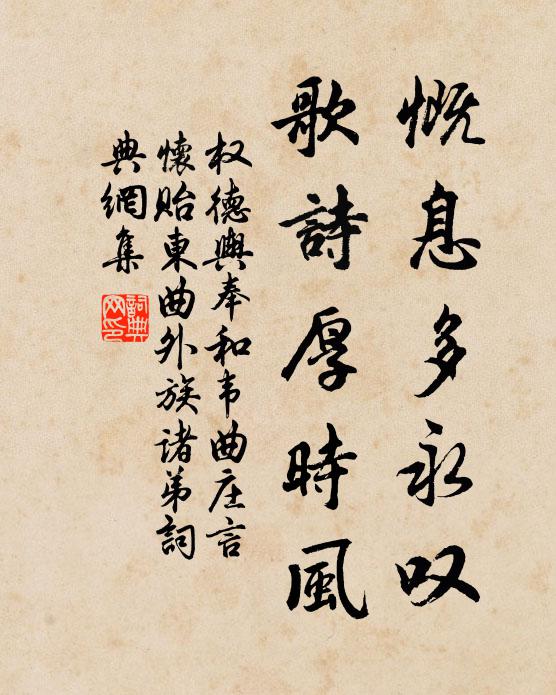 慨息多永叹
歌詩厚時風
权德輿奉和韦曲庄言
懷貽東曲外族诸弟詞
典網集
詞典
网印